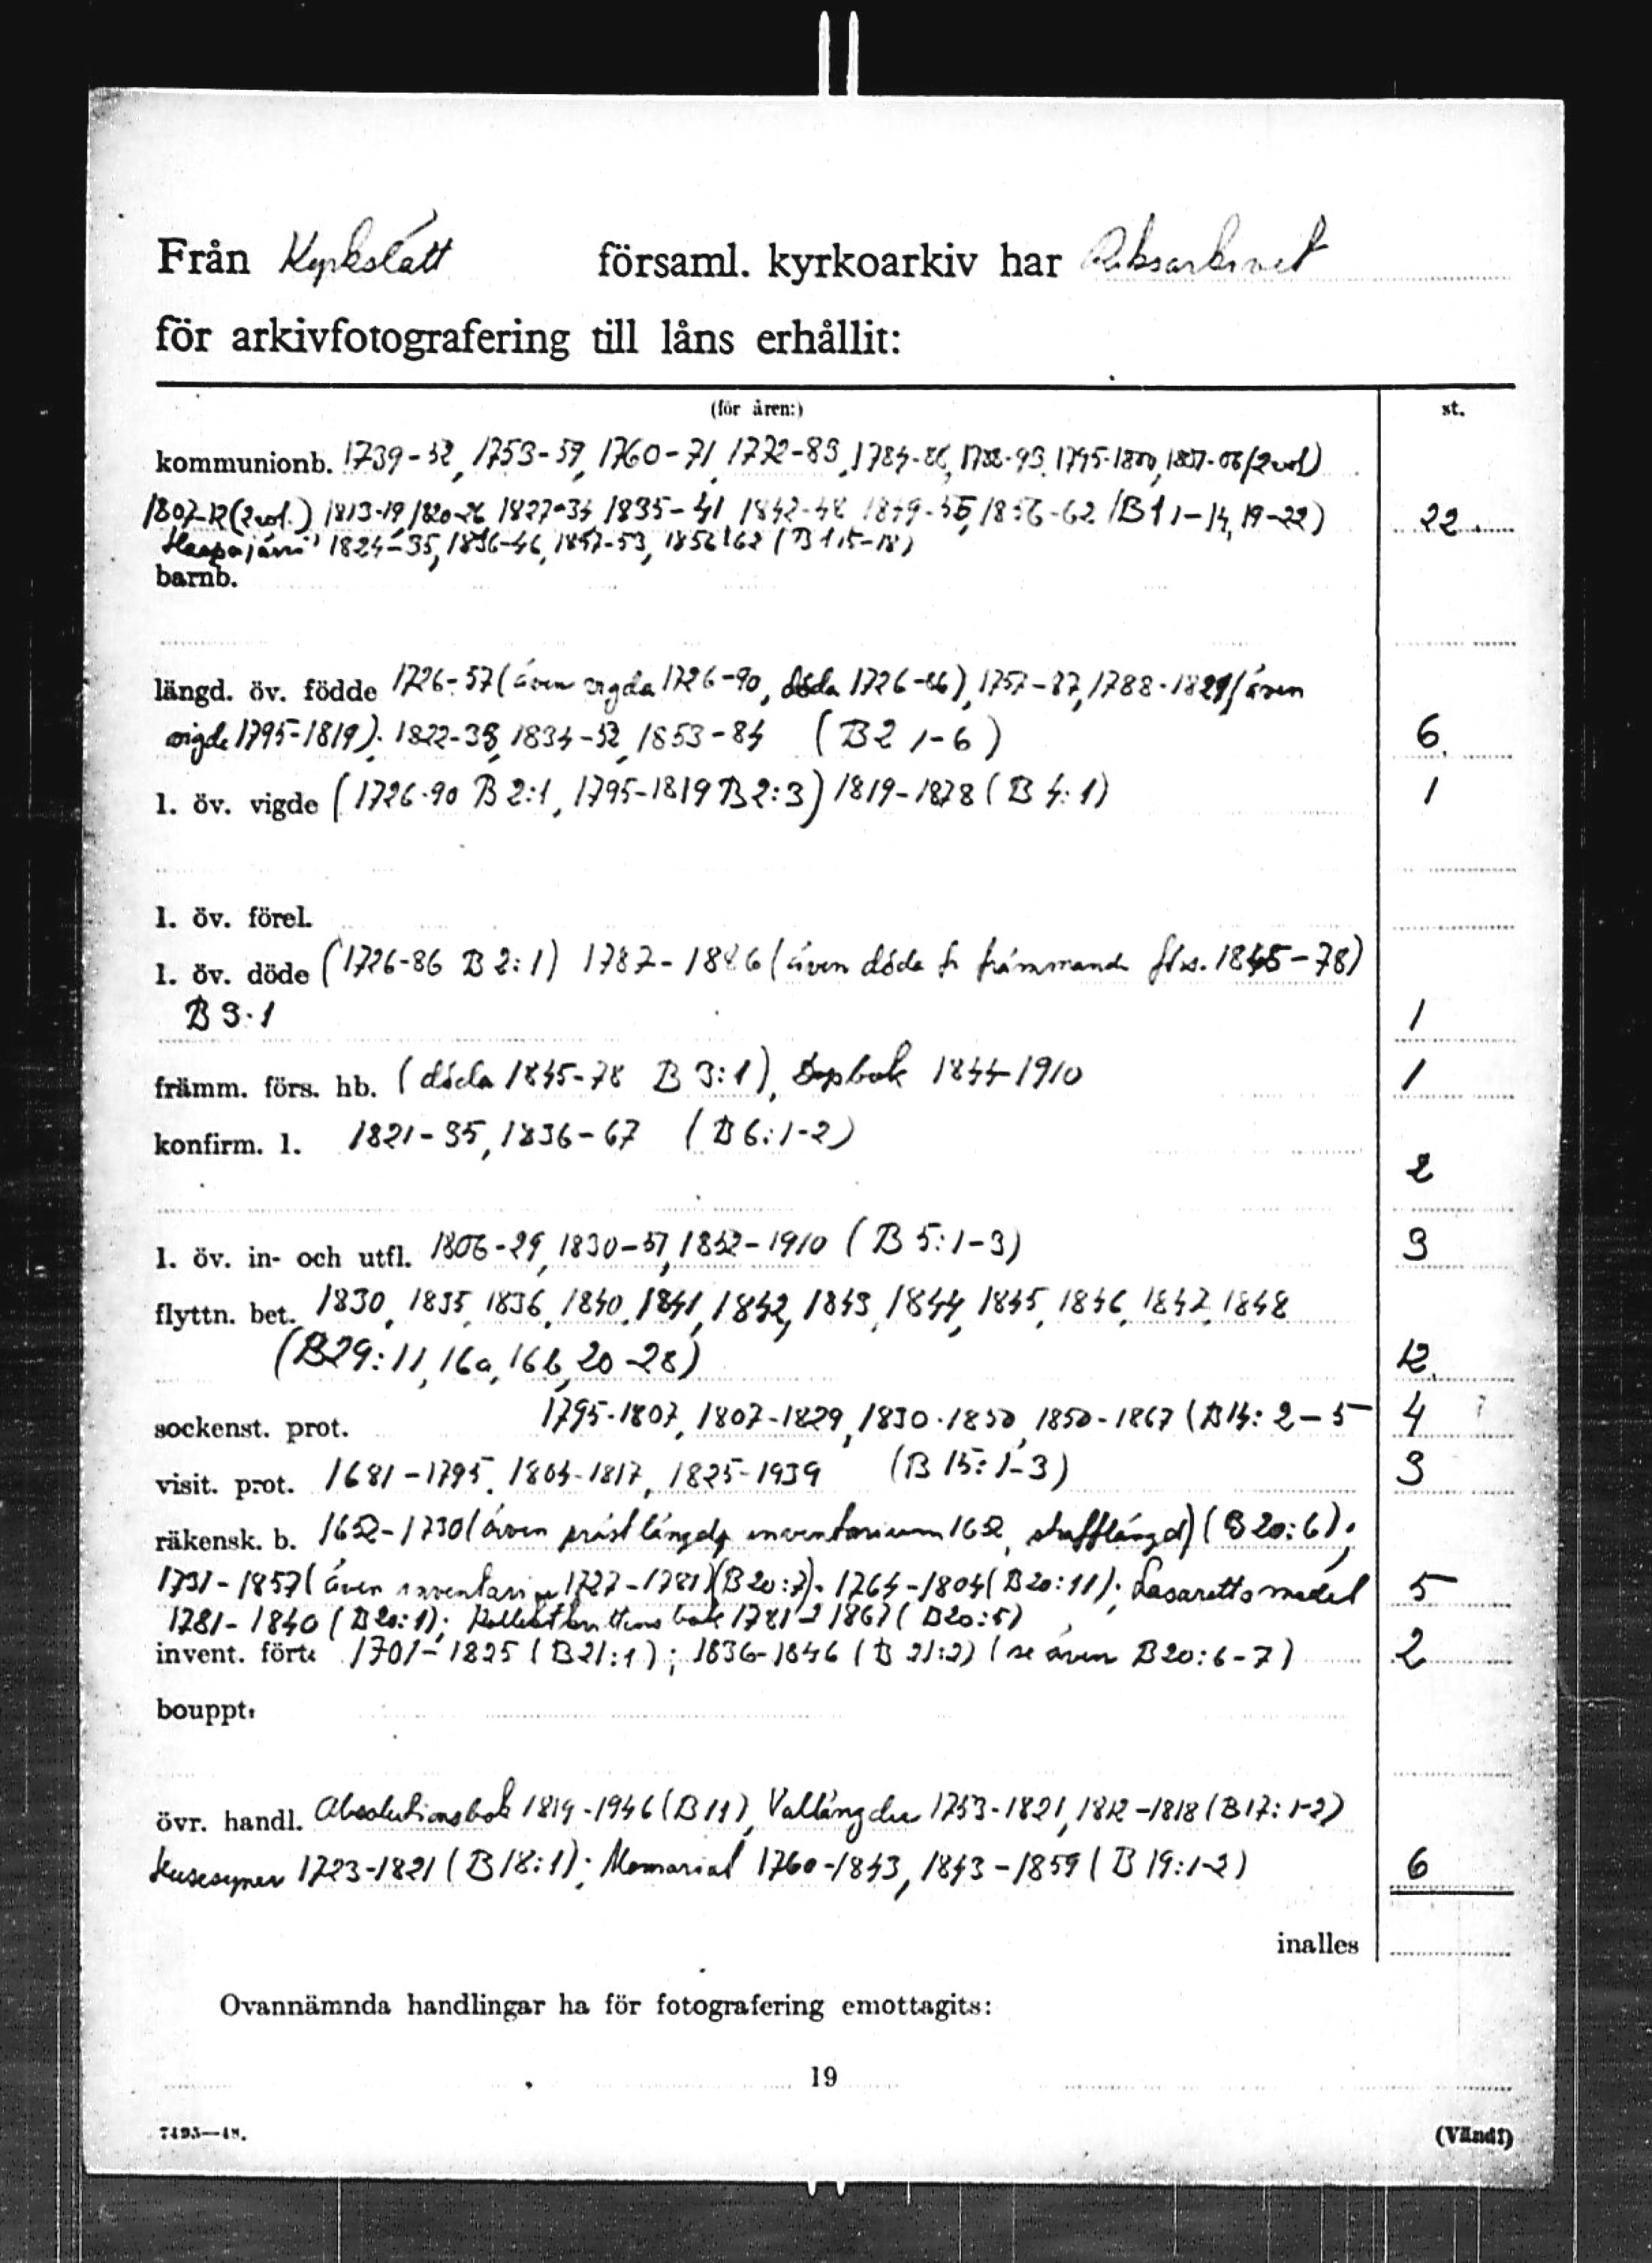 Från Kyrkslätt församl. kyrkoarkiv har Riksarkivet
för arkivfotografering till låns erhållit:
(för åren:) st.
kommunionb. 1739-52, 1753-59, 1760-71, 1772-83, 1784-86, 1788-93, 1795-1800, 1801-06 (2 vol)
1807-12 (2 vol.) 1813-19, 1820-26, 1827-34, 1835-41, 1842-48, 1849-55, 1856-62 (B 1 1-14, 19-22) 22
Haapajärvi 1824-35, 1836-46, 1847-53, 1856-62 (B 1 15-18)
barnb.
längd. öv. födde 1726-57 (även vigda 1726-90, döda 1726-86), 1757-87, 1788-1821 (även
vigde 1795-1819), 1822-33, 1834-52, 1853-84 (B 2 1-6) 6.
l. öv. vigde (1726-90 B 2:1, 1795-1819 B 2:3) 1819-1878 (B 4:1) 1
l. öv. förel.
l. öv. döde (1726-86 B 2:1) 1787-1886 (även döda fr främmande förs. 1845-78)
B 3:1 1
främm. förs. hb. (döda 1845-78 B 3:1), Dopbok 1844-1910 1
konfirm. l. 1821-35, 1836-67 (B 6:1-2)
2
l. öv. in- och utfl. 1806-29, 1830-51, 1852-1910 (B 5:1-3) 3
flyttn. bet. 1830, 1835, 1836, 1840, 1841, 1842, 1843, 1844, 1845, 1846, 1847, 1848
(B29:11, 16a, 16b, 20-28) 12.
sockenst. prot. 1795-1807, 1807-1829, 1830-1850, 1850-1867 (B 14:2-5 4
visit. prot. 1681-1795, 1804-1817, 1825-1939 (B 15:1-3) 3
räkensk. b. 1652-1730 (även inventarium 1652, strafflängd) (B 20:6);
1731-1857 (även inventarium 1727-1781) (B 20:7); 1764-1804 (B 20:11); Lasarettsmedel 5
1781-1840 (B 20:1); 1781-1867 (B20:5)
invent. fört. 1701-1825 (B 21:1); 1836-1846 (B 21:2) (se även B 20:6-7) 2
bouppt.
övr. handl. Absolutionsbok 1819-1946 (B 11), Vallängder 1753-1821, 1812-1818 (B 17:1-2)
Husesyner 1723-1821 (B 18:1); Memorial 1760-1843, 1843-1859 (B 19:1-2) 6
inalles
Ovannämnda handlingar ha för fotografering emottagits:
19
7495—48.
(Vänd!)